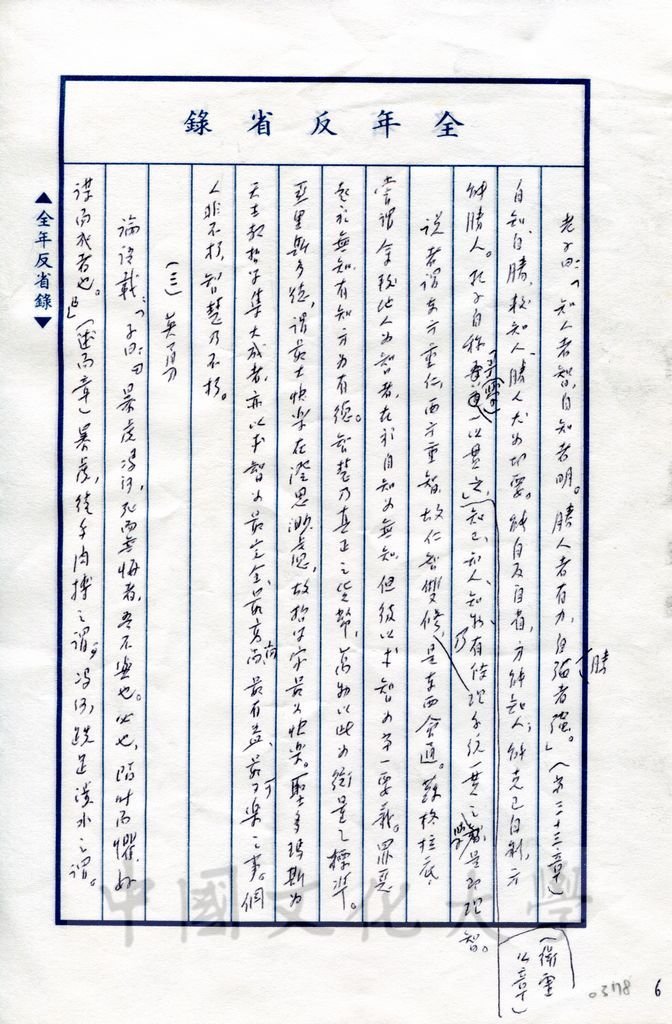 全年反省錄
老子曰：「知人者智，自知者明。勝人者有力，自勝者強。」（第三十三章）
自知、自勝，較知人、勝人尤為切要。能自反自省，方能知人，能克己自制，方
能勝人。孔子自稱「予一以貫之」（衛靈公章）知己、知人、知物，乃有條理系統一貫之學，是即理智。
說者謂東方重仁，西方重智，故仁智雙修，是東西會通。蘇格拉底，
嘗謂余較他人為智者，在於自知為無知，但後以求智為第一要義。罪惡
起於無知，有知方為有德。智慧乃真正之貨幣，萬物以此為衡量之標準。
亞里斯多德，謂最大快樂在澄思渺慮，故哲學家最為快樂。聖多瑪斯為
天主教哲學集大成者，亦以求智為最完全、最高尚、最有益、最可樂之事。個
人非不朽，智慧乃不朽。
（三）英勇
論語載：「子曰：暴虎馮河，死而無悔者，吾不與也。必也，臨事而懼，好
謀而成者也。」（述而章）暴虎，徒手肉搏之謂，馮河，跣足涉水之謂。
▲全年反省錄▼
中國文化大學
0378
6